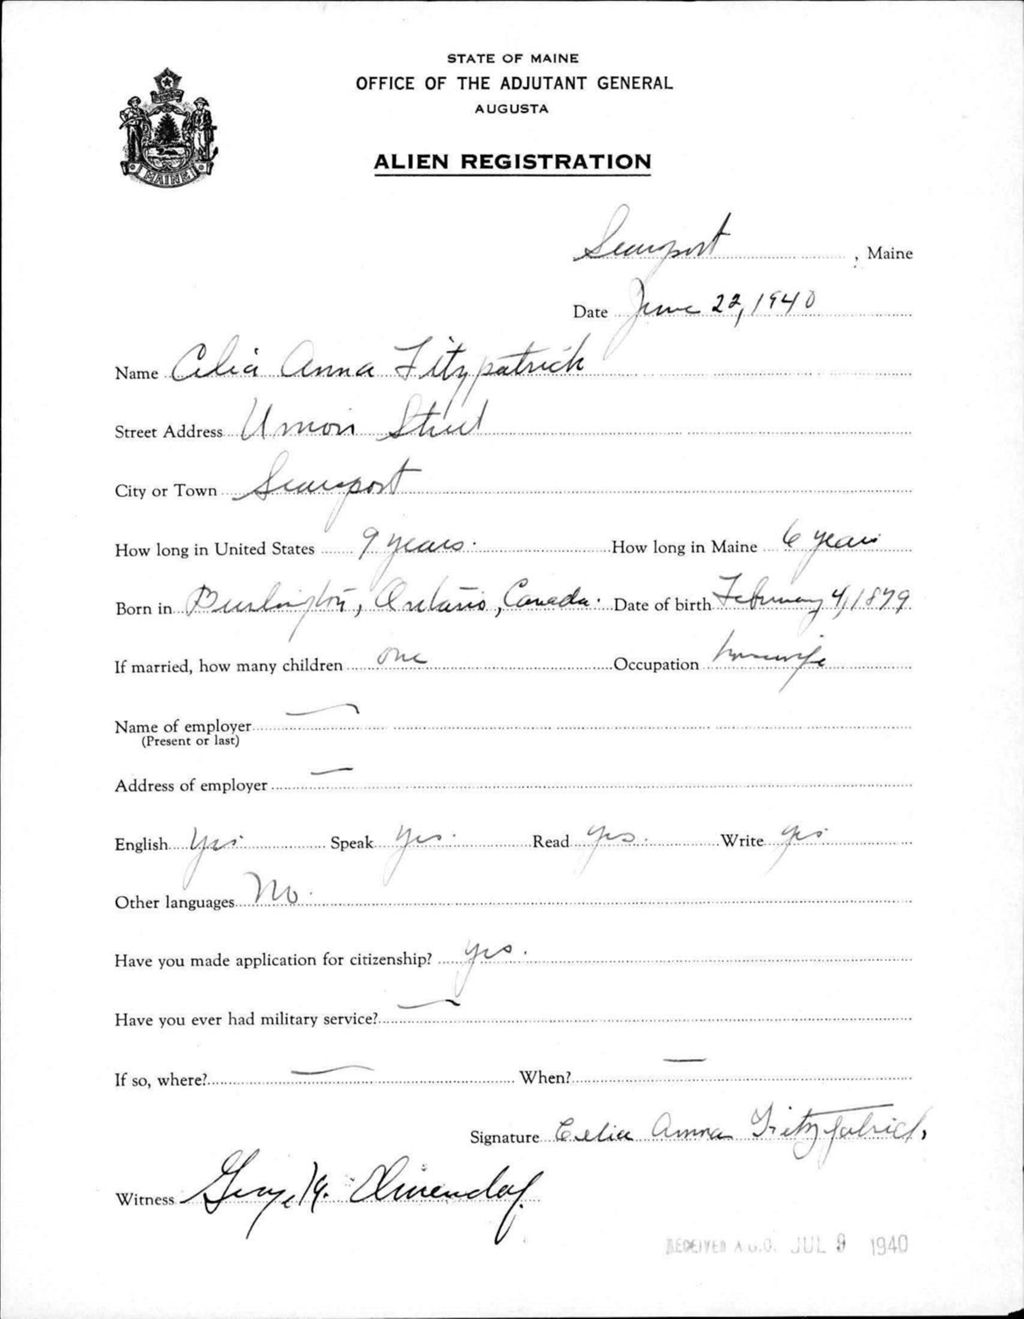 STATE OF MAINE
OFFICE OF THE ADJUTANT GENERAL
AUGUSTA
MAINE
ALIEN REGISTRATION
Searsport, Maine
Date June 22, 1940
Name Celia Anna Fitzpatrick
Street Address Union Street
City or Town Searsport
How long in United States 9 years. How long in Maine 6 years
Born in Burlington, Ontario, Canada. Date of birth February 4, 1879
If married, how many children one Occupation housewife
Name of employer —
(Present or last)
Address of employer —
English Yes. Speak Yes. Read yes. Write yes
Other languages No.
Have you made application for citizenship? yes.
Have you ever had military service? —
If so, where? — When? —
Signature Celia Anna Fitzpatrick
Witness
RECEIVED A.G.O. JUL 9 1940